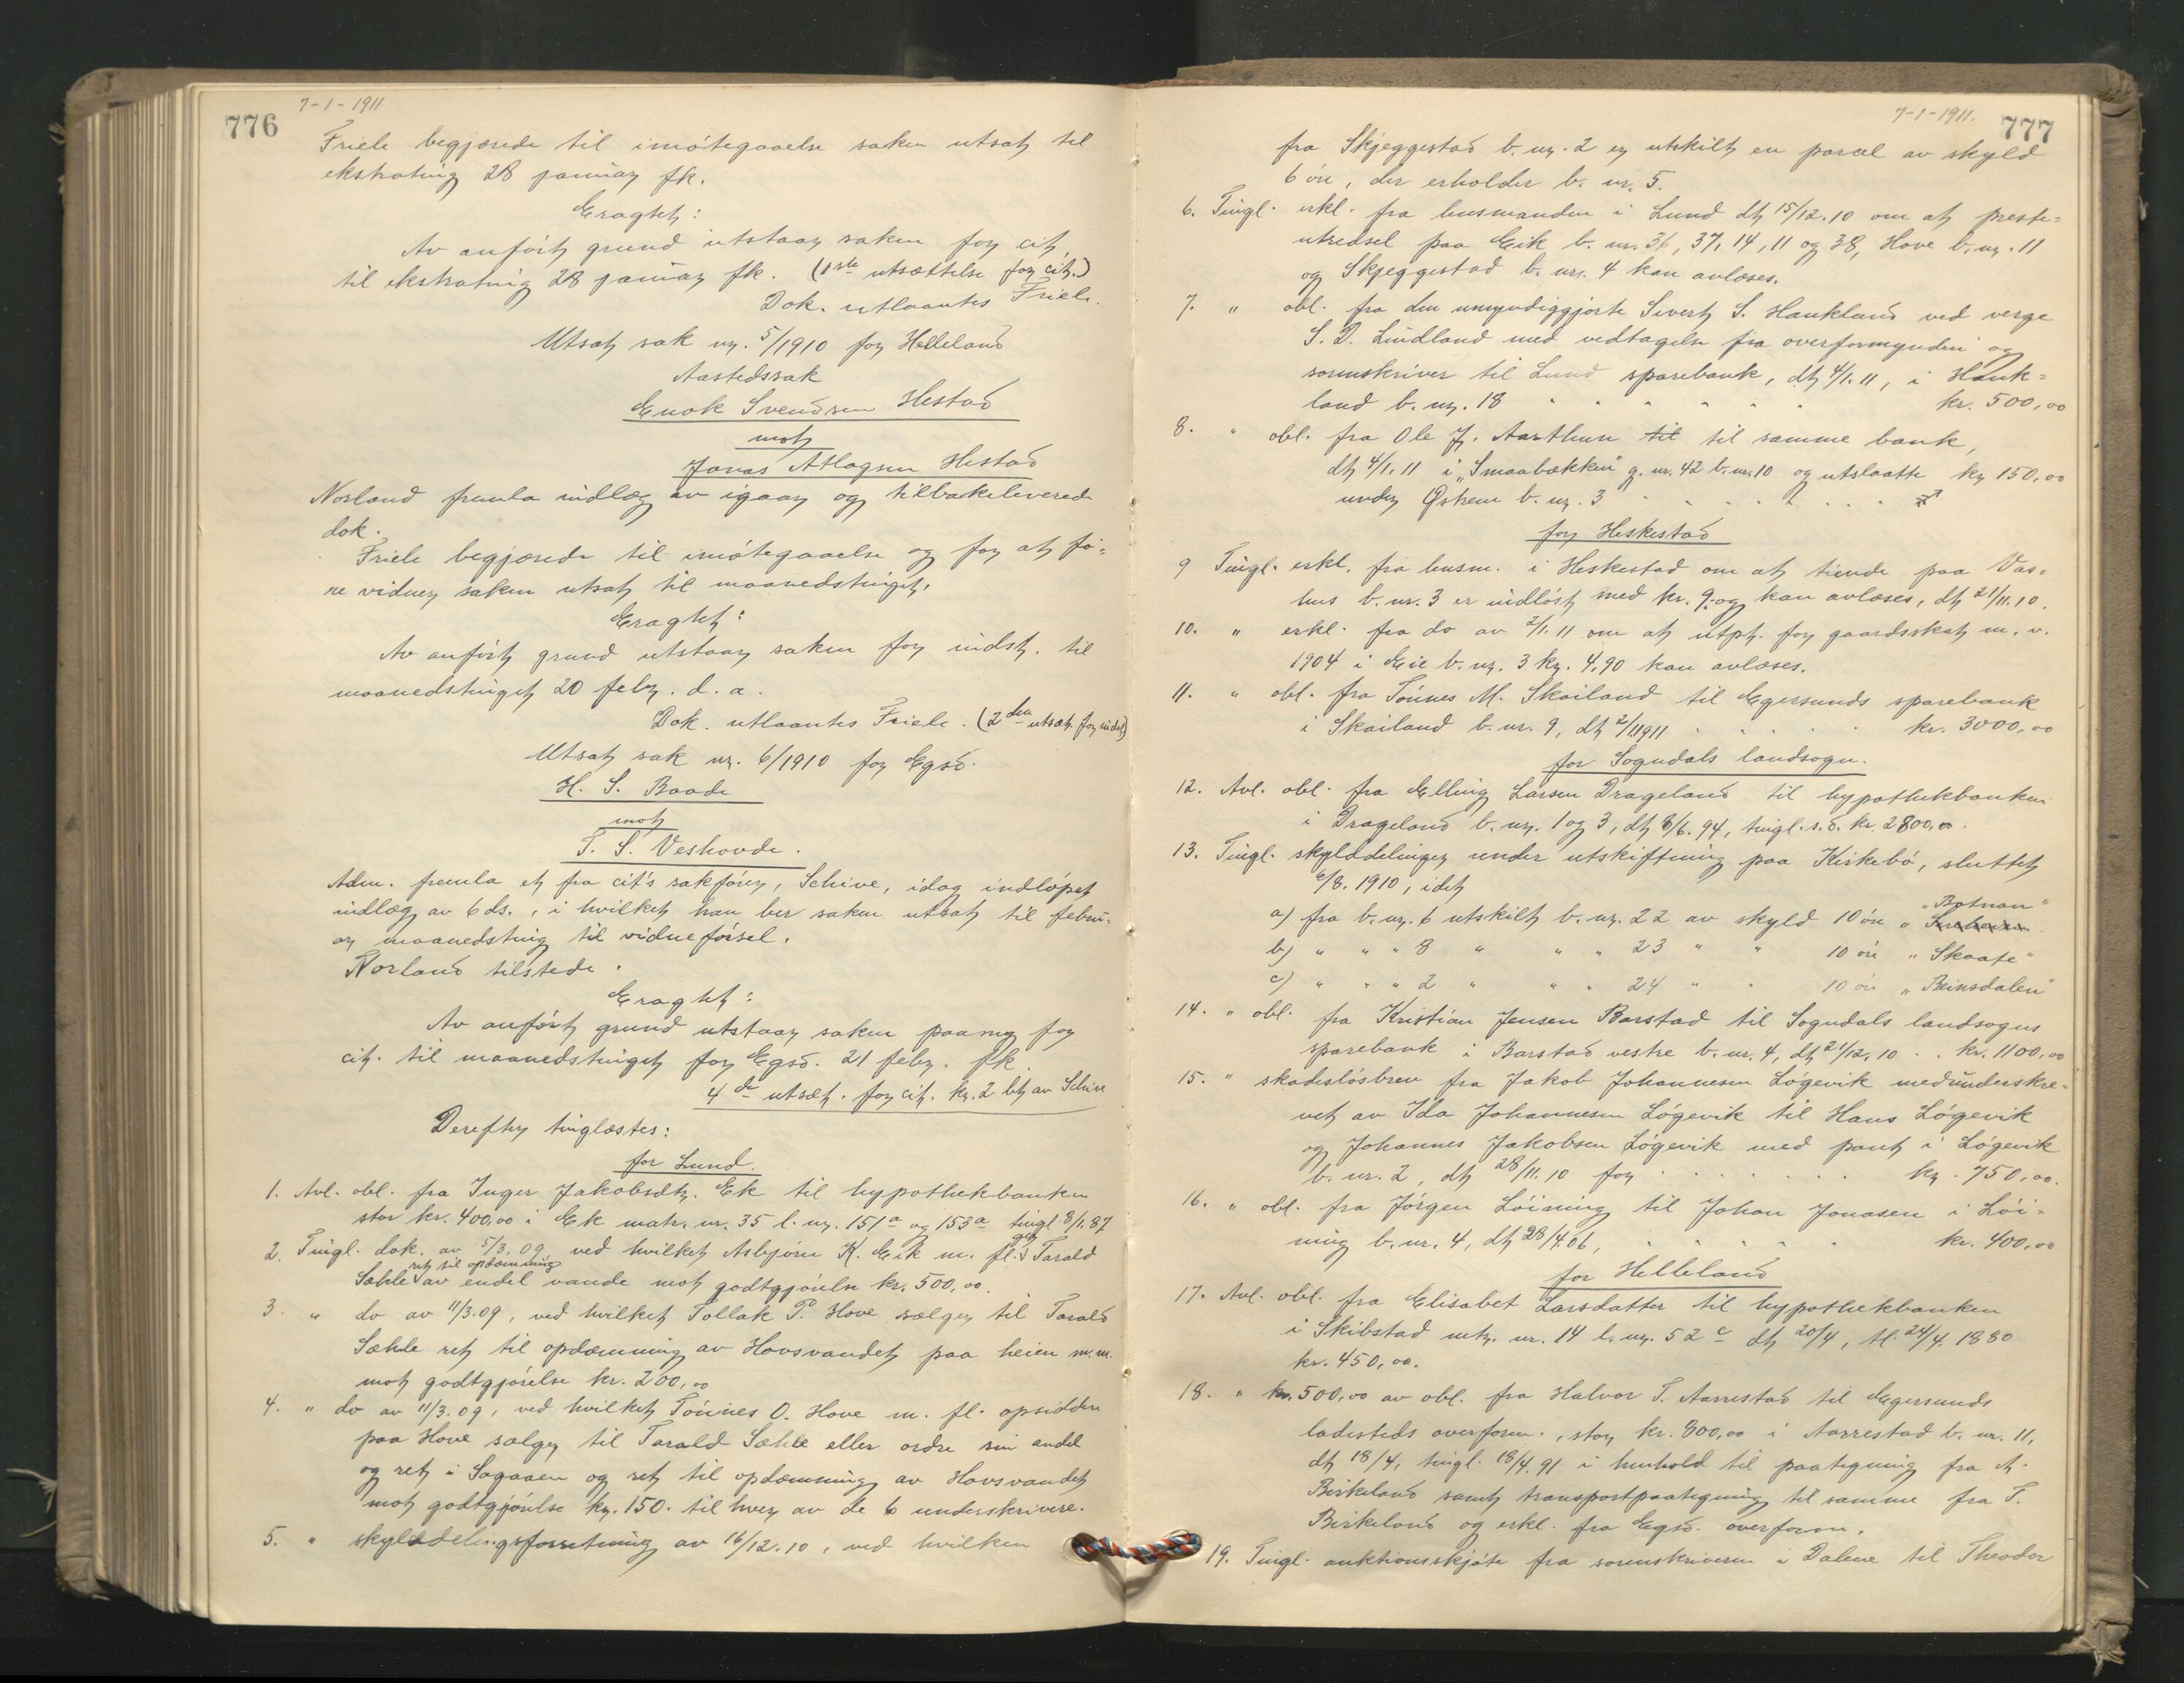 776
7-1-1911
Friele begjærede til imøtegaaelse saken utsat til
ekstrating 28 januar fk.
Eragtet:
Av anført grund utstaar saken for cit.
til ekstrating 28 januar fk. (1ste utsættelse for cit.)
Dok. utlaantes Friele.
Utsat sak nr. 5/1910 for Helleland
Aastedssak
Enok Svendsen Hestad
mot
Jonas Atlagsen Hestad
Norland fremla indlæg av igaar og tilbakeleverede
dok.
Friele begjærede til imøtegaaelse og for at fø-
re vidner saken utsat til maanedstinget.
Eragtet:
Av anført grund utstaar saken for indst. til
maanedstinget 20 febr. d. a.
Dok. utlaantes Friele. (2den utsæt. for indst)
Utsat sak nr. 6/1910 for Egsd.
H. S. Baade
mot
T. S. Veshovde.
Adm. fremla et fra cit's sakfører, Schive, idag indløpet
indlæg av 6 ds., i hvilket han ber saken utsat til febru-
ar maanedsting til vidneførsel.
Norland tilstede.
Eragtet:
Av anført grund utstaar saken paany for
cit. til maanedstinget for Egsd. 21 febr. fk.
4de utsæt. for cit. kr. 2 bt av Schive
Derefter tinglæstes:
for Lund.
1. Avl. obl. fra Inger Jakobsdtr. Ek til hypothekbanken
stor kr. 400,00 i Ek matr. nr. 35 l. nr. 151a og 153a tingl. 8/1.87
2. Tingl. dok. av 5/3.09 ved hvilket Asbjørn K. Eik m. fl. gir Tarald
Sæhle ret til opdæmning av endel vande mot godtgjørelse kr. 500,00.
3. " do av 11/3.09, ved hvilket Tollak P. Hove sælger til Tarald
Sæhle ret til opdæmning av Hovsvandet paa heien m.m.
mot godtgjørelse kr. 200,00
4. " do av 11/3.09, ved hvilket Tønnes O. Hove m. fl. opsiddere
paa Hove sælger til Tarald Sæhle eller ordre sin andel
og ret i Sagaaen og ret til opdæmning av Hovsvandet
mot godtgjørelse kr. 150. til hver av de 6 underskrivere.
5. " skylddelingsforretning av 16/12.10, ved hvilken
7-1-1911.
777
fra Skjeggestad b. nr. 2 er utskilt en parcel av skyld
6 øre, der erholder b. nr. 5.
6. Tingl. erkl. fra lensmanden i Lund dt 15/12.10 om at preste-
utredsel paa Eik b. nr. 36, 37, 14, 11 og 38, Hove b. nr. 11
og Skjeggestad b. nr. 4 kan avlæses.
7. " obl. fra den umyndiggjorte Sivert S. Haukland ved verge
S. D. Lindland med vedtagelse fra overformynderi og
sorenskriver til Lund sparebank, dt 4/1.11, i Hauk-
land b. nr. 18 kr. 500,00
8. " obl. fra Ole J. Aarthun til til samme bank,
dt 4/1.11 i "Smaabækken" g. nr. 42 b. nr. 10 og utslaatte kr 150,00
under Østrem b. nr. 3
for Heskestad
9 Tingl. erkl. fra lensm. i Heskestad om at tiende paa Vas-
hus b. nr. 3 er indløst med kr. 9. og kan avlæses, dt 21/11.10.
10. " erkl. fra do av 2/1.11 om at utpt. for gaardsskat m. v.
1904 i Eie b. nr. 3 kr. 4,90 kan avlæses.
11. " obl. fra Tønnes M. Skailand til Egersunds sparebank
i Skailand b. nr. 9, dt 2/1 1911 kr. 3000,00
for Sogndals landsogn.
12. Avl. obl. fra Elling Larsen Drageland til hypothekbanken
i Drageland b. nr. 1 og 3, dt 8/6.94, tingl. s. d. kr. 2800,00.
13. Tingl. skylddelinger under utskiftning paa Kirkebø, sluttet
6/8.1910, idet
a) fra b. nr. 6 utskilt b. nr. 22 av skyld 10 øre "Botnan"
b) " " " 8 " " " 23 " " 10 øre "Skaate"
c) " " " 2 " " " 24 " " 10 øre "Beinsdalen"
14. " obl. fra Kristian Jensen Barstad til Sogndals landsogns
sparebank i Barstad vestre b. nr. 4, dt 21/12.10 . . kr. 1100,00
15. " skadesløsbrev fra Jakob Johannesen Løgevik medunderskre-
vet av Ida Johannesen Løgevik til Hans Løgevik
og Johannes Jakobsen Løgevik med pant i Løgevik
b. nr. 2, dt 28/11.10 for kr. 750,00.
16. " obl. fra Jørgen Løining til Johan Jonasen i Løi-
ning b. nr. 4, dt 28/4.06, kr. 400,00
for Helleland
17. Avl. obl. fra Elisabet Larsdatter til hypothekbanken
i Skibstad mtr. nr. 14 l. nr. 52c dt 20/4, tl. 24/4.1880
kr. 450,00.
18. " kr. 500,00 av obl. fra Halvor T. Aarrestad til Egersunds
ladesteds overform., stor kr. 800,00 i Aarrestad b. nr. 11,
dt 18/4, tingl. 18/4.91 i henhold til paategning fra A.
Birkeland samt transportpaategning til samme fra T.
Birkeland og erkl. fra Egsd. overform.
19. Tingl. auktionsskjøte fra sorenskriveren i Dalene til Theodor